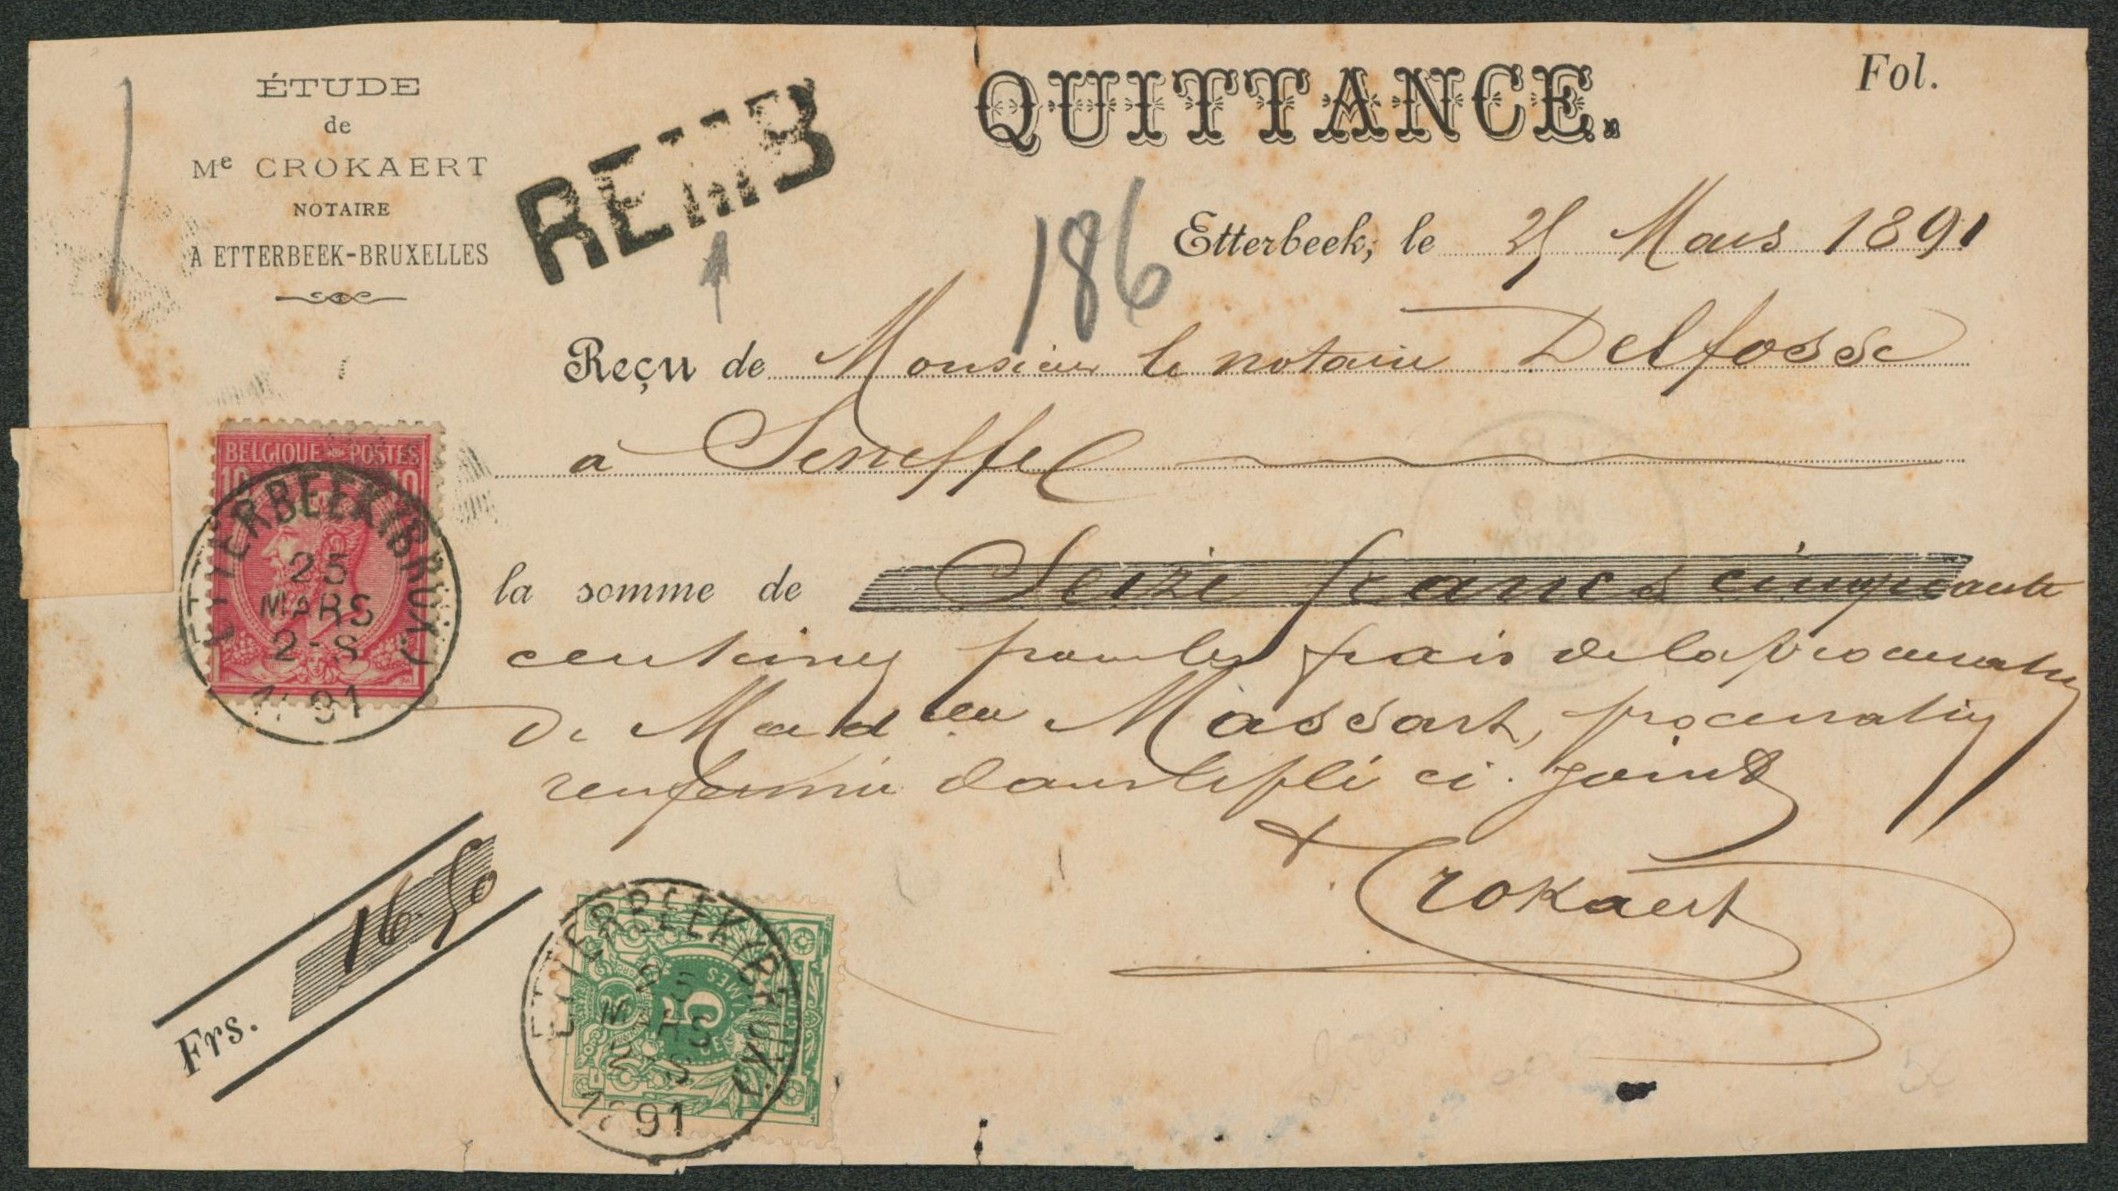 ÉTUDE
de
Me CROKAERT
NOTAIRE
A ETTERBEEK-BRUXELLES
REMB
QUITTANCE.
Fol.
186
Etterbeek, le 25 Mars 1891
Reçu de Monsieur le notaire Delfosse
a Seneffe
la somme de Seize francs cinquante
centimes pour les frais de la procuration
de Mad Massart, procuration
renfermée dans le pli ci-joint
Crokaert
Frs. 16.50
BELGIQUE POSTES
10 10
ETTERBEEK (BRUX.)
25
MARS
2-S
1891
5
ETTERBEEK (BRUX.)
25
MARS
2-S
1891